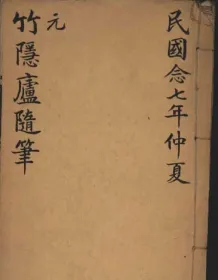 民國念七年仲夏
元
竹隱廬隨筆